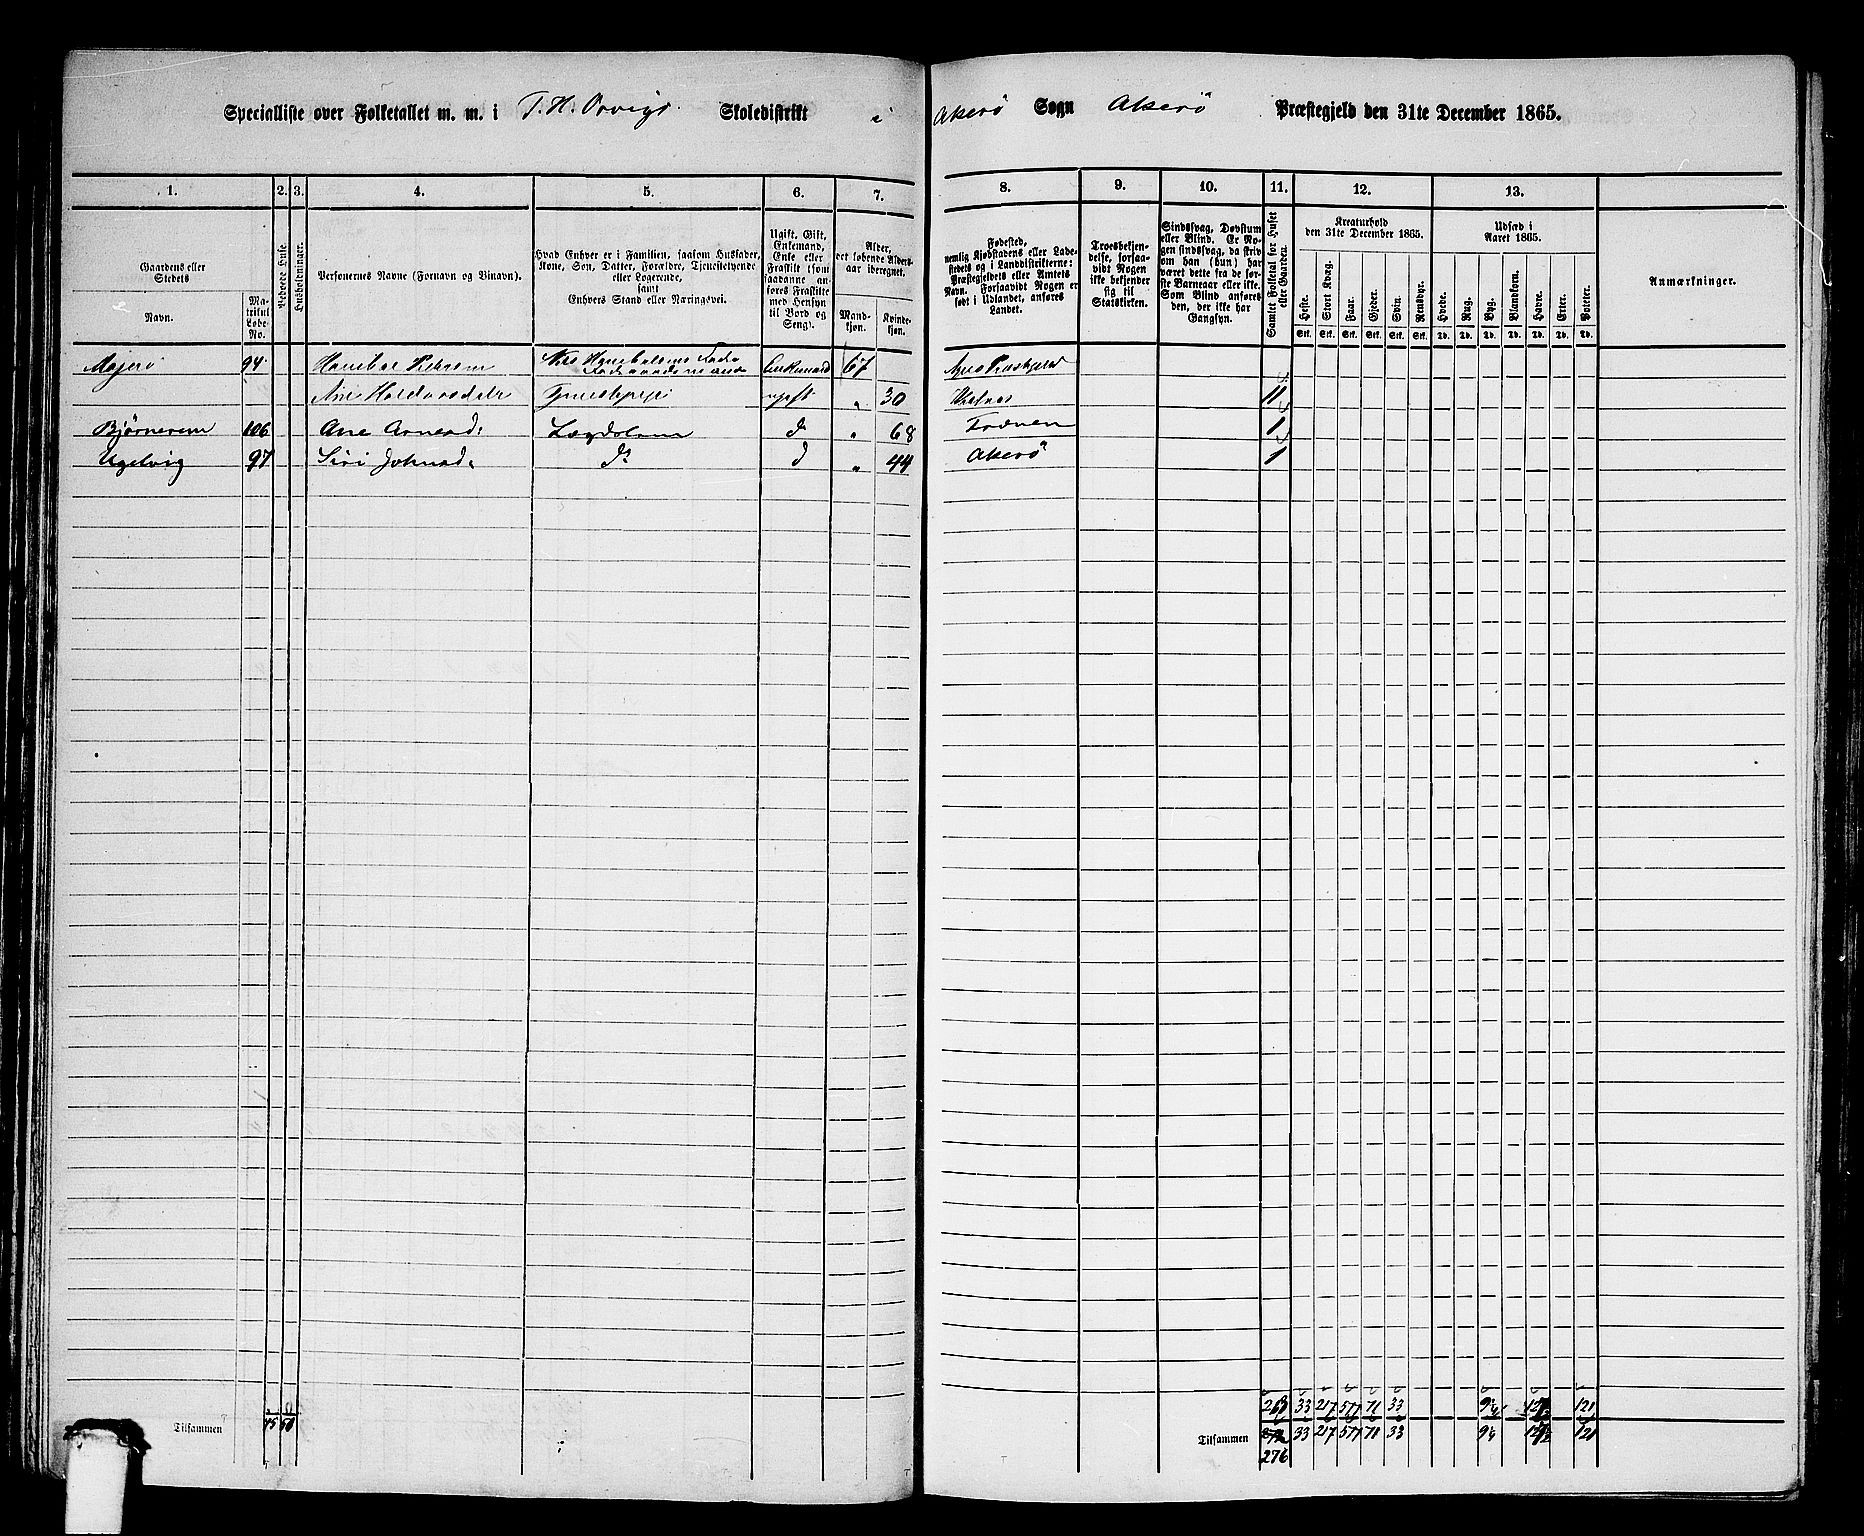 Specialliste over Folketallet m. m. i T. H. Orvigs Skoledistrikt i Akerø Sogn Akerø Præstegjeld den 31te December 1865.
1. 2. 3. 4. 5. 6. 7. 8. 9. 10. 11. 12. 13.
Gaardens eller Stedets
Navn.
Matrikul Løbe-No.
Beboede Huse.
Husholdninger.
Personernes Navne (Fornavn og Binavn).
Hvad Enhver er i Familien, saasom Husfader, Kone, Søn, Datter, Forældre, Tjenestetyende eller Logerende,
samt
Enhvers Stand eller Næringsvei.
Ugift, Gift, Enkemand, Enke eller Fraskilt (som saadanne anføres Fraskilte med Hensyn til Bord og Seng).
Alder,
det løbende Alders-aar iberegnet.
Mand-kjøn.
Kvinde-kjøn.
Fødested,
nemlig Kjøbstadens eller Ladestedets og i Landdistrikterne: Præstegjeldets eller Amtets Navn. Forsaavidt Nogen er født i Udlandet, anføres Landet.
Troesbekjendelse, forsaavidt Nogen ikke bekjender sig til Statskirken.
Sindssvag, Døvstum eller Blind. Er Nogen sindssvag, da skrives om han (hun) har været dette fra de første Barneaar eller ikke. Som Blind anføres den, der ikke har Gangsyn.
Samlet Folketal for Huset eller Gaarden.
Kreaturhold
den 31te December 1865.
Heste. Stort Kvæg. Faar. Gjeder. Svin. Rensdyr.
Stk. Stk. Stk. Stk. Stk. Stk.
Udsæd i
Aaret 1865.
Hvede. Rug. Byg. Blandkorn. Havre. Erter. Poteter.
Td. Td. Td. Td. Td. Td. Td.
Anmærkninger.
Majerø 94 67
Ane ugift " 30 11
Bjørnerem 106 Ane Lægdslem d " 68 Fræven 1
Ugelvig 97 Siri d d " 44 Akerø 1
263 33 217 577 71 33 121
Tilsammen 45 50
Tilsammen 33 217 577 71 33 121
276